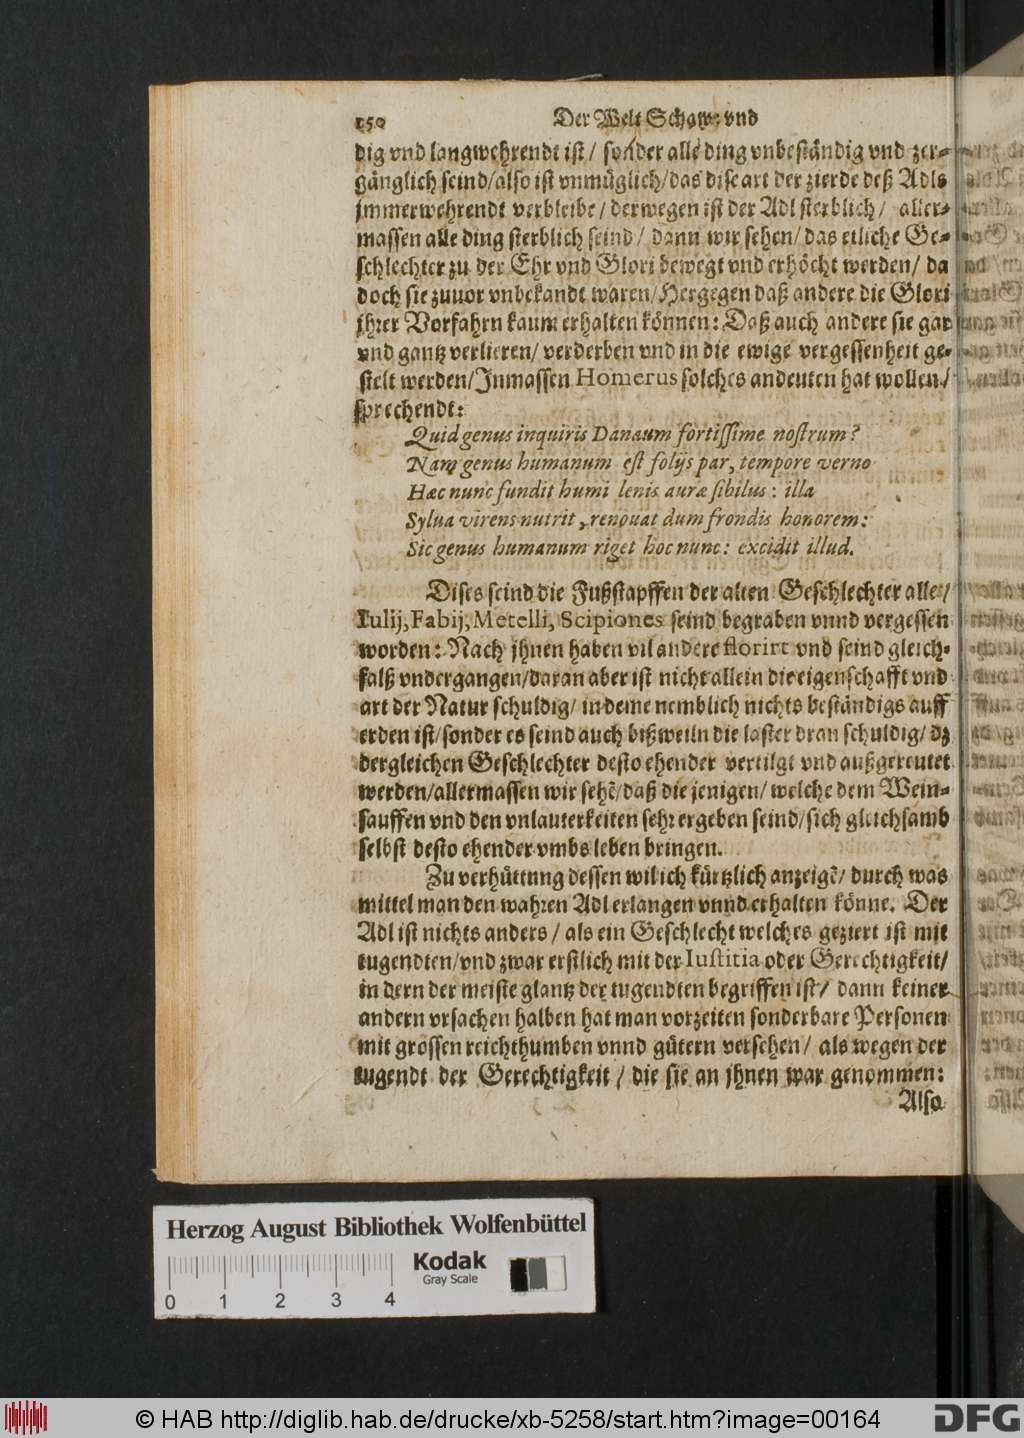 150 Der Welt Schaw: vnd
dig vnd langwehrendt ist / sonder alle ding vnbeständig vnd zer-
gänglich seind/also ist vnmüglich/das dise art der zierde deß Adls
jmmerwehrendt verbleibe / derwegen ist der Adl sterblich / aller-
massen alle ding sterblich seind / dann wir sehen/ das etliche Ge-
schlechter zu der Ehr vnd Glori bewegt vnd erhöcht werden/ da
doch sie zuuor vnbekandt waren/Hergegen daß andere die Glori
jhrer Vorfahrn kaum erhalten können: Daß auch andere sie gar
vnd gantz verlieren/ verderben vnd in die ewige vergessenheit ge-
stelt werden/Inmassen Homerus solches andeuten hat wollen/
sprechendt:
Quid genus inquiris Danaum fortissime nostrum?
Nam genus humanum est folijs par, tempore verno
Hæc nunc fundit humi lenis auræ sibilus: illa
Sylua virens nutrit, renouat dum frondis honorem:
Sic genus humanum riget hoc nunc: excidit illud.
Dises seind die Fußstapffen der alten Geschlechter alle/
Iulij, Fabij, Metelli, Scipiones seind begraben vnnd vergessen
worden: Nach jhnen haben vil andere florirt vnd seind gleich-
falß vndergangen/daran aber ist nicht allein die eigenschafft vnd
art der Natur schuldig/ in deme nemblich nichts beständigs auff
erden ist/sonder es seind auch bißweiln die laster dran schuldig/ dz
dergleichen Geschlechter desto ehender vertilgt vnd außgereutet
werden/allermassen wir sehẽ/daß die jenigen/ welche dem Wein-
sauffen vnd den vnlauterkeiten sehr ergeben seind/sich gleichsamb
selbst desto ehender vmbs leben bringen.
Zu verhüttung dessen wil ich kürtzlich anzeigẽ/ durch was
mittel man den wahren Adl erlangen vnnd erhalten könne. Der
Adl ist nichts anders / als ein Geschlecht welches geziert ist mit
tugendten/vnd zwar erstlich mit der Iustitia oder Gerechtigkeit/
in dern der meiste glantz der tugendten begriffen ist/ dann keiner
andern vrsachen halben hat man vorzeiten sonderbare Personen
mit grossen reichthumben vnnd gütern versehen/ als wegen der
tugendt der Gerechtigkeit / die sie an jhnen war genommen:
Also
Herzog August Bibliothek Wolfenbüttel
Kodak
Gray Scale
0 1 2 3 4
© HAB http://diglib.hab.de/drucke/xb-5258/start.htm?image=00164
DFG